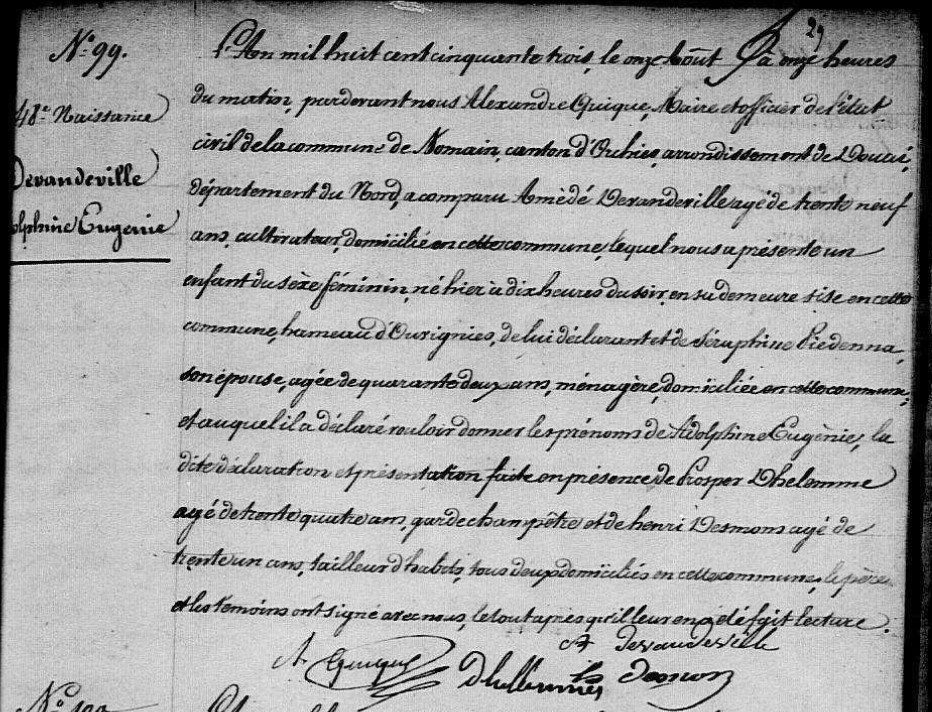 29
N° 99.
48e Naissance
Devandeville
olphine Eugenie
L'An mil huit cent cinquante trois, le onze Août à onze heures
du matin, pardevant nous Alexandre Quique, Maire et officier de l'état
civil de la commune de Nomain, canton d'Orchies, arrondissement de Douai,
département du Nord, a comparu Amédé Devandeville agé de trente neuf
ans, cultivateur, domicilié en cette commune, lequel nous a présente un
enfant du sèxe féminin, né hier à dix heures du soir, en sa demeure sise en cette
commune, hameau d'Ouvignies, de lui déclarant et de Séraphine Piedenna,
son épouse, agée de quarante deux ans, ménagère, domiciliée en cette commune,
et auquel il a déclaré vouloir donner les prénoms de Adolphine Eugènie, la
dite déclaration et présentation faite en présence de Prosper Dhelemme
agé de trente quatre ans, garde champêtre et de henri Desmons agé de
trente un ans, tailleur d'habits, tous deux domiciliés en cette commune, le père
et les témoins ont signé avec nous, le tout après qu'il leur en a été fait lecture.
A Devandeville
A Quique Dhellemmes h desmons
N° 100